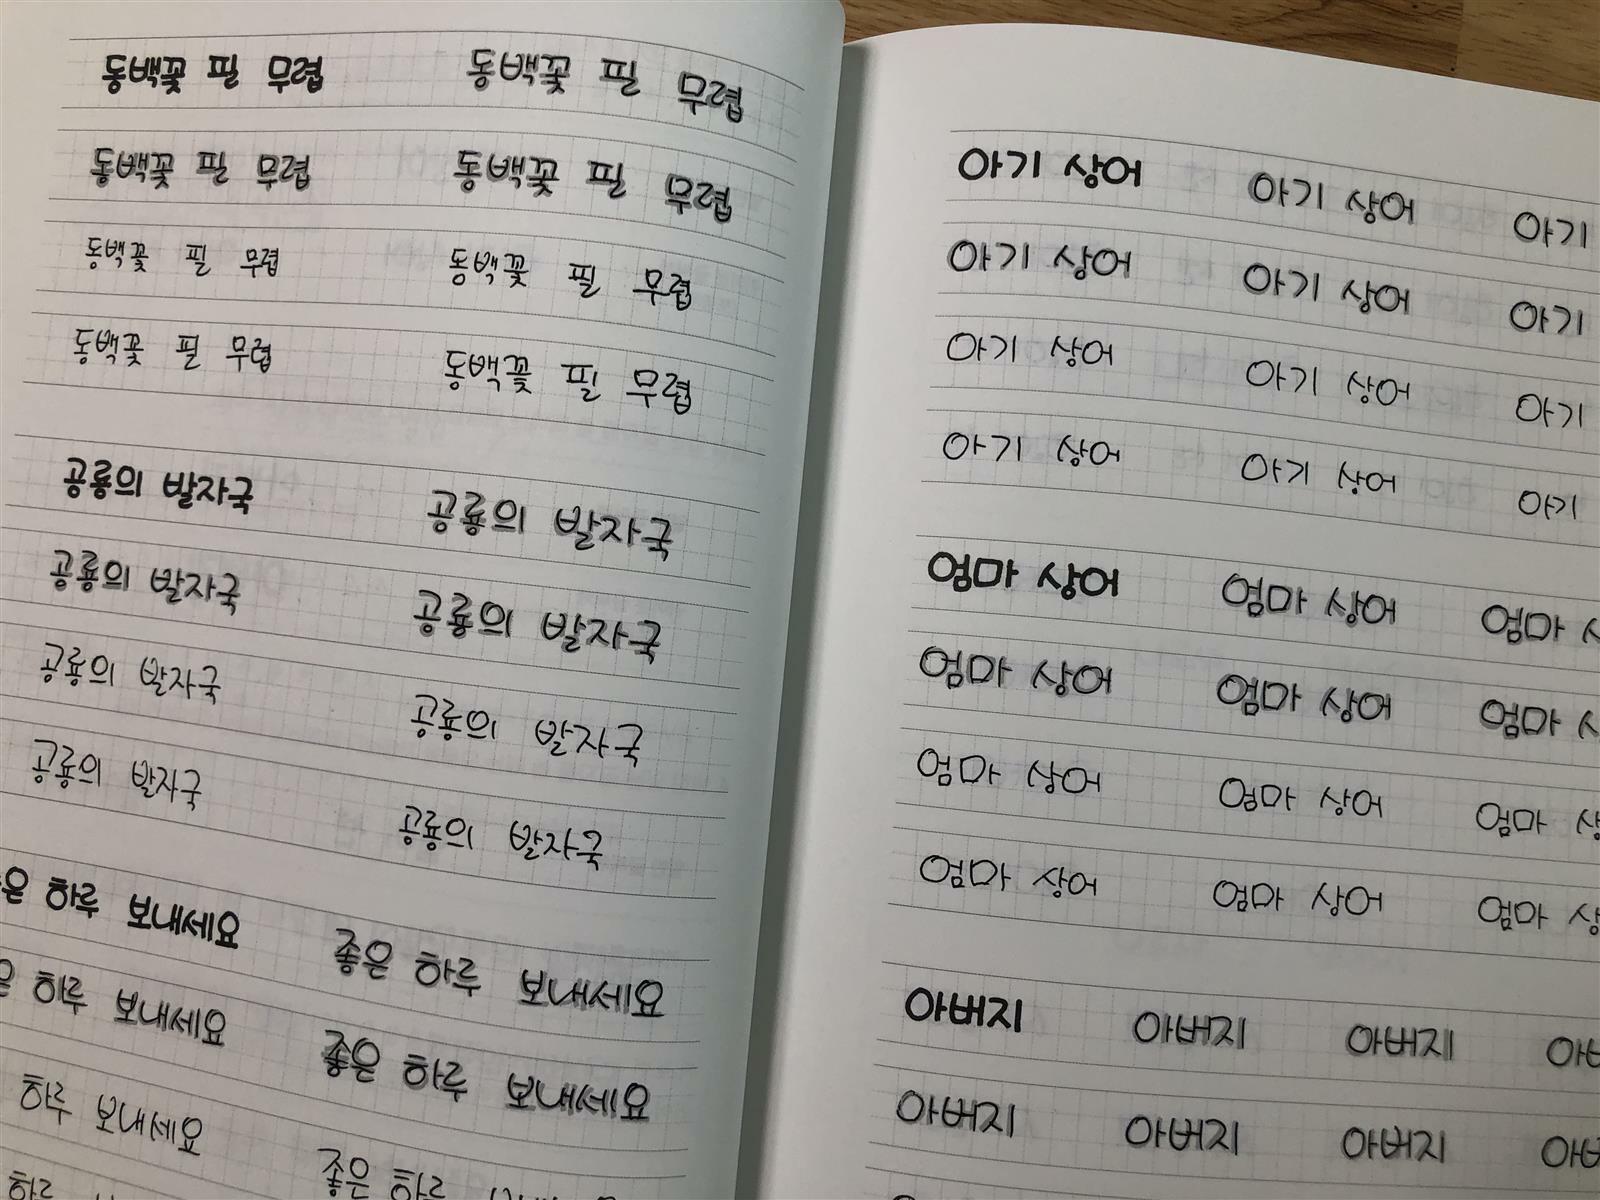 동백꽃 필 무렵 동백꽃 필 무렵
동백꽃 필 무렵 동백꽃 필 무렵
동백꽃 필 무렵 동백꽃 필 무렵
동백꽃 필 무렵 동백꽃 필 무렵
공룡의 발자국 공룡의 발자국
공룡의 발자국 공룡의 발자국
공룡의 발자국 공룡의 발자국
공룡의 발자국 공룡의 발자국
은 하루 보내세요 좋은 하루 보내세요
은 하루 보내세요 좋은 하루 보내세요
하루 보내세요 좋은 하루
하루
아기 상어 아기 상어 아기
아기 상어 아기 상어 아기
아기 상어 아기 상어 아기
아기 상어 아기 상어 아기
엄마 상어 엄마 상어 엄마
엄마 상어 엄마 상어 엄마
엄마 상어 엄마 상어 엄마
엄마 상어 엄마 상어 엄마 상
아버지 아버지 아버지 아버
아버지 아버지 아버지 아버